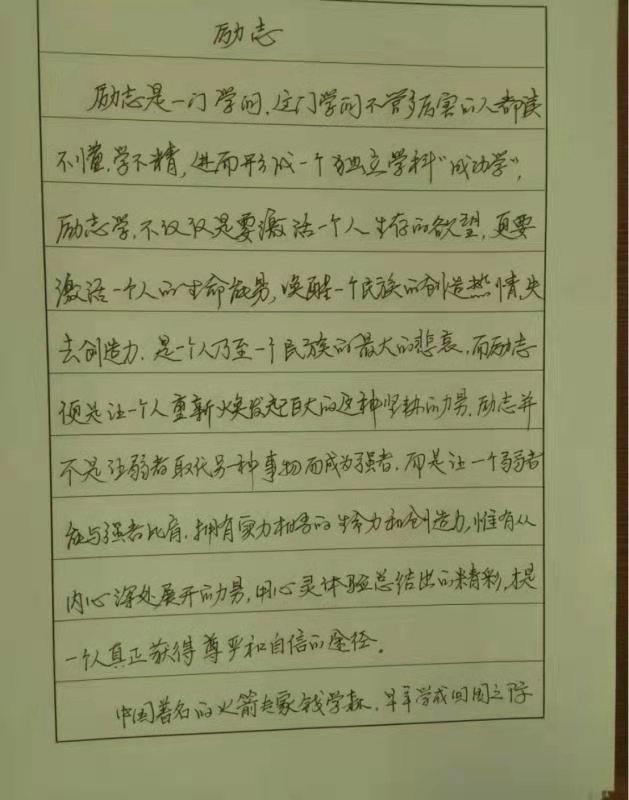 励志
励志是一门学问，这门学问不管多厉害的人都读
不懂，学不精，进而形成一个独立学科“成功学”，
励志学，不仅仅是要激活一个人生存的欲望，更要
激活一个人的生命能量，唤醒一个民族的创造热情，失
去创造力，是一个人乃至一个民族的最大的悲哀，而励志
便是让一个人重新焕发起巨大的这种坚执的力量，励志并
不是让弱者取代另一种事物而成为强者，而是让一个弱者
能与强者比肩，拥有实力相当的生命力和创造力，惟有从
内心深处展开的力量，用心灵体验总结出的精彩，才是
一个人真正获得尊严和自信的途径。
中国著名的火箭专家钱学森，早年学成回国之际